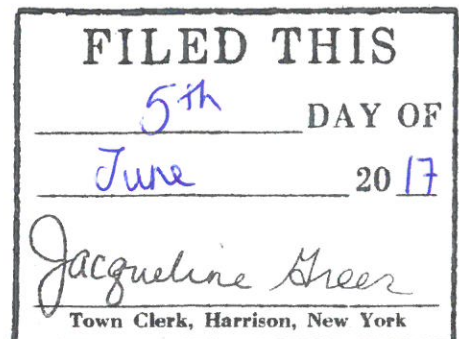 FILED THIS
5th DAY OF
June 20 17
Jacqueline Greer
Town Clerk, Harrison, New York